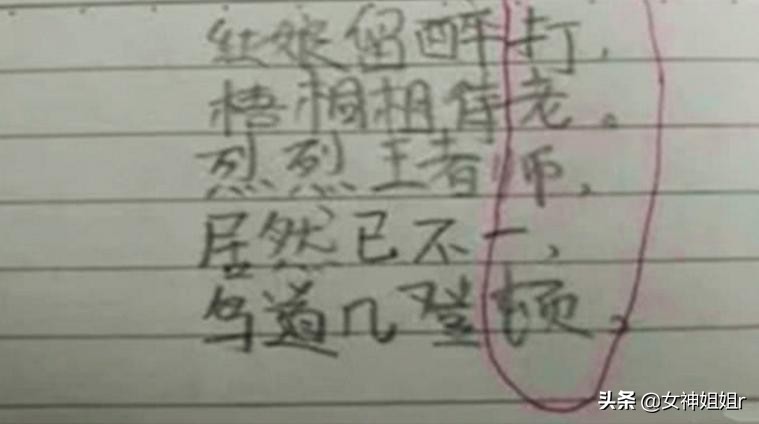 红娘留醉打,
梧桐相待老。
烈烈王者师,
居然已不一,
鸟道几登顿。
头条 @女神姐姐r